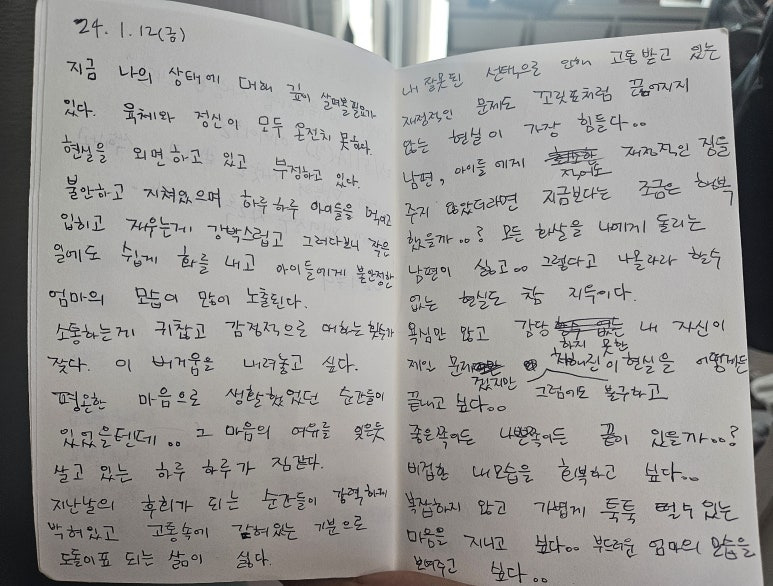 24. 1. 12(금)
지금 나의 상태에 대해 깊이 살펴볼 필요가
있다. 육체와 정신이 모두 온전치 못하다.
현실을 외면하고 있고 부정하고 있다.
불안하고 지쳐있으며 하루하루 아이들을 먹이고
입히고 재우는게 강박스럽고 그러다보니 작은
일에도 쉽게 화를 내고 아이들에게 불안정한
엄마의 모습이 많이 노출된다.
소통하는게 귀찮고 감정적으로 대하는 횟수가
잦다. 이 버거움을 내려놓고 싶다.
평온한 마음으로 생활했었던 순간들이
있었을텐데.. 그 마음의 여유를 잊은듯
살고 있는 하루 하루가 짐같다.
지난날의 후회가 되는 순간들이 강력하게
박혀있고 고통속에 갇혀있는 기분으로
도돌이표 되는 삶이 싫다.
내 잘못된 선택으로 인해 고통받고 있는
재정적인 문제도 꼬릿표처럼 끊어지지
않는 현실이 가장 힘들다..
남편, 아이들에게 적어도 재정적인 짐을
주지 않았더라면 지금보다는 조금은 행복
했을까..? 모든 화살을 나에게 돌리는
남편이 싫고.. 그렇다고 나몰라라 할수
없는 현실도 참 지옥이다.
욕심만 많고 감당하지 못한 내 자신이
제일 문제겠지만 그럼에도 불구하고 이 현실을 어떻게든
끝내고 싶다..
좋은쪽이든 나쁜쪽이든 끝이 있을까..?
비겁한 내모습을 회복하고 싶다..
복잡하지 않고 가볍게 툭툭 떨수있는
마음을 지니고 싶다.. 부드러운 엄마의 모습을
보여주고 싶다..